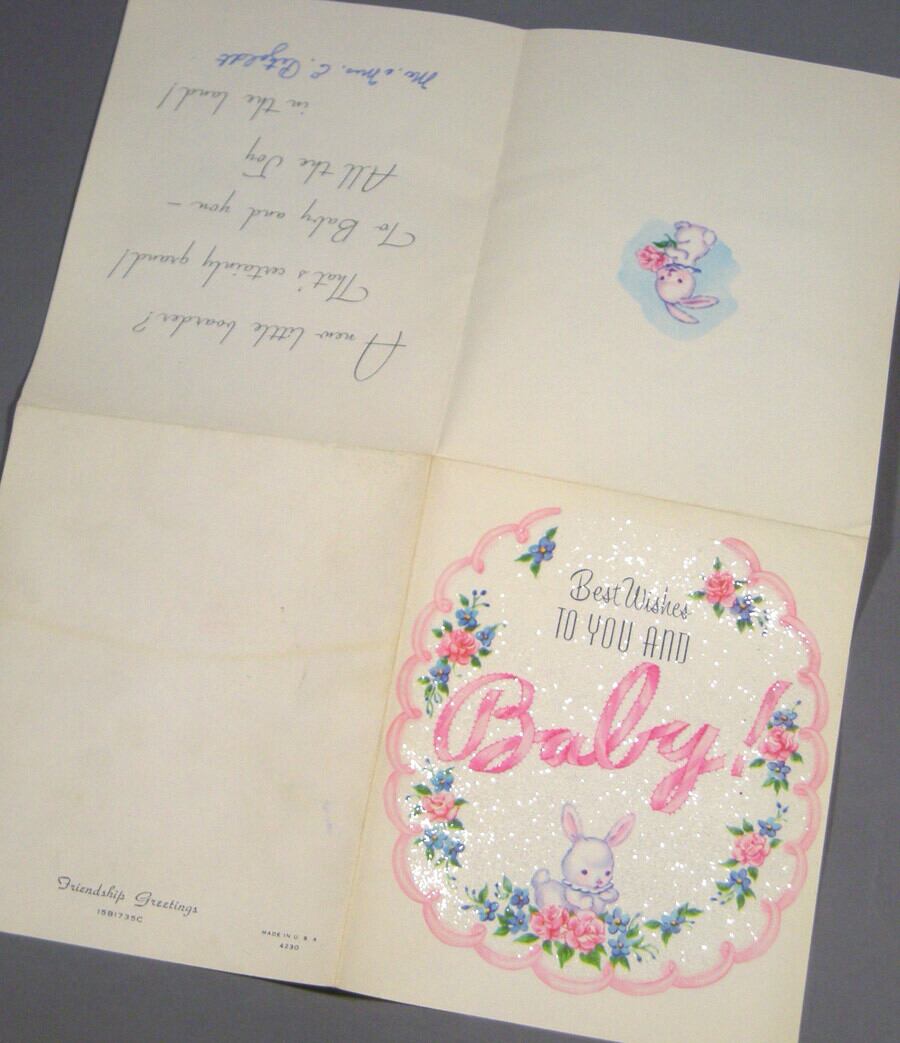 Best Wishes
TO YOU AND
Baby!
A new little boarder?
That's certainly grand!
To Baby and you –
All the Joy
in the land!
Mr. & Mrs. E.
Friendship Greetings
15B1735C
MADE IN U. S. A.
4230